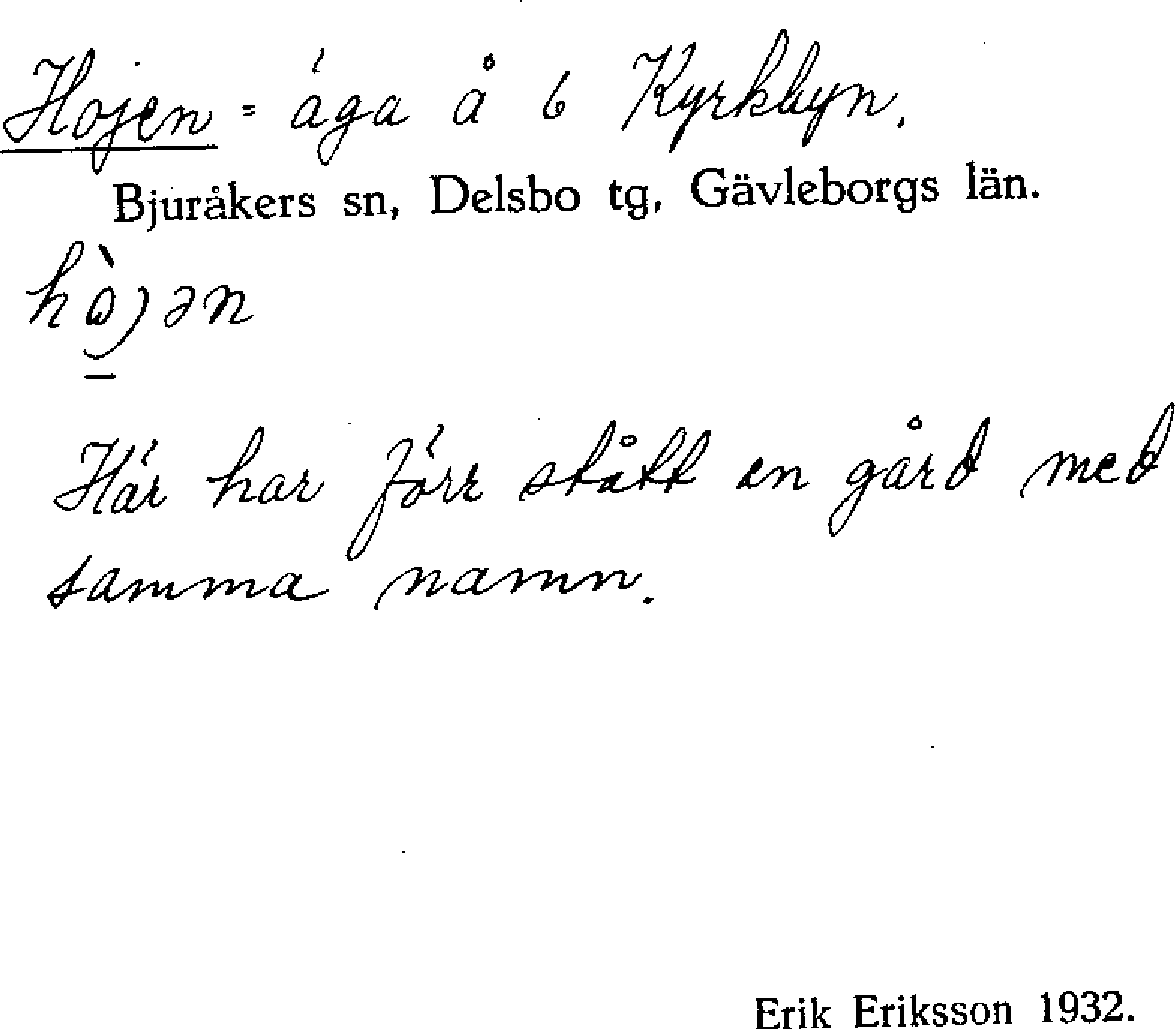 Hojen = äga å 6 Kyrkbyn.
Bjuråkers sn, Delsbo tg, Gävleborgs län.
Här har förr stått en gård med
samma namn.
Erik Eriksson 1932.